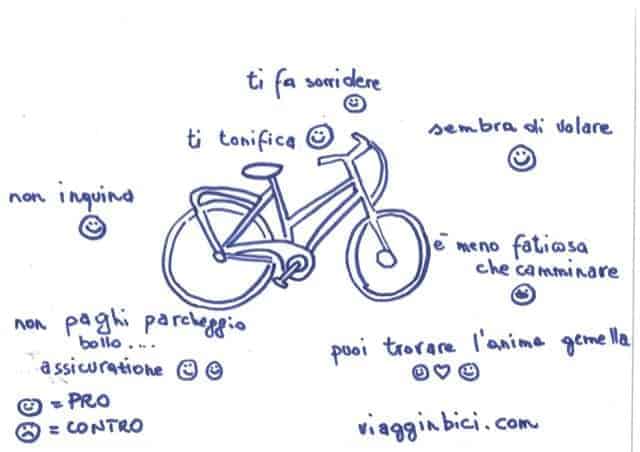 ti fa sorridere
ti tonifica
sembra di volare
non inquina
è meno faticosa
che camminare
non paghi parcheggio
bollo....
assicurazione
puoi trovare l'anima gemella
= PRO
= CONTRO
viagginbici.com